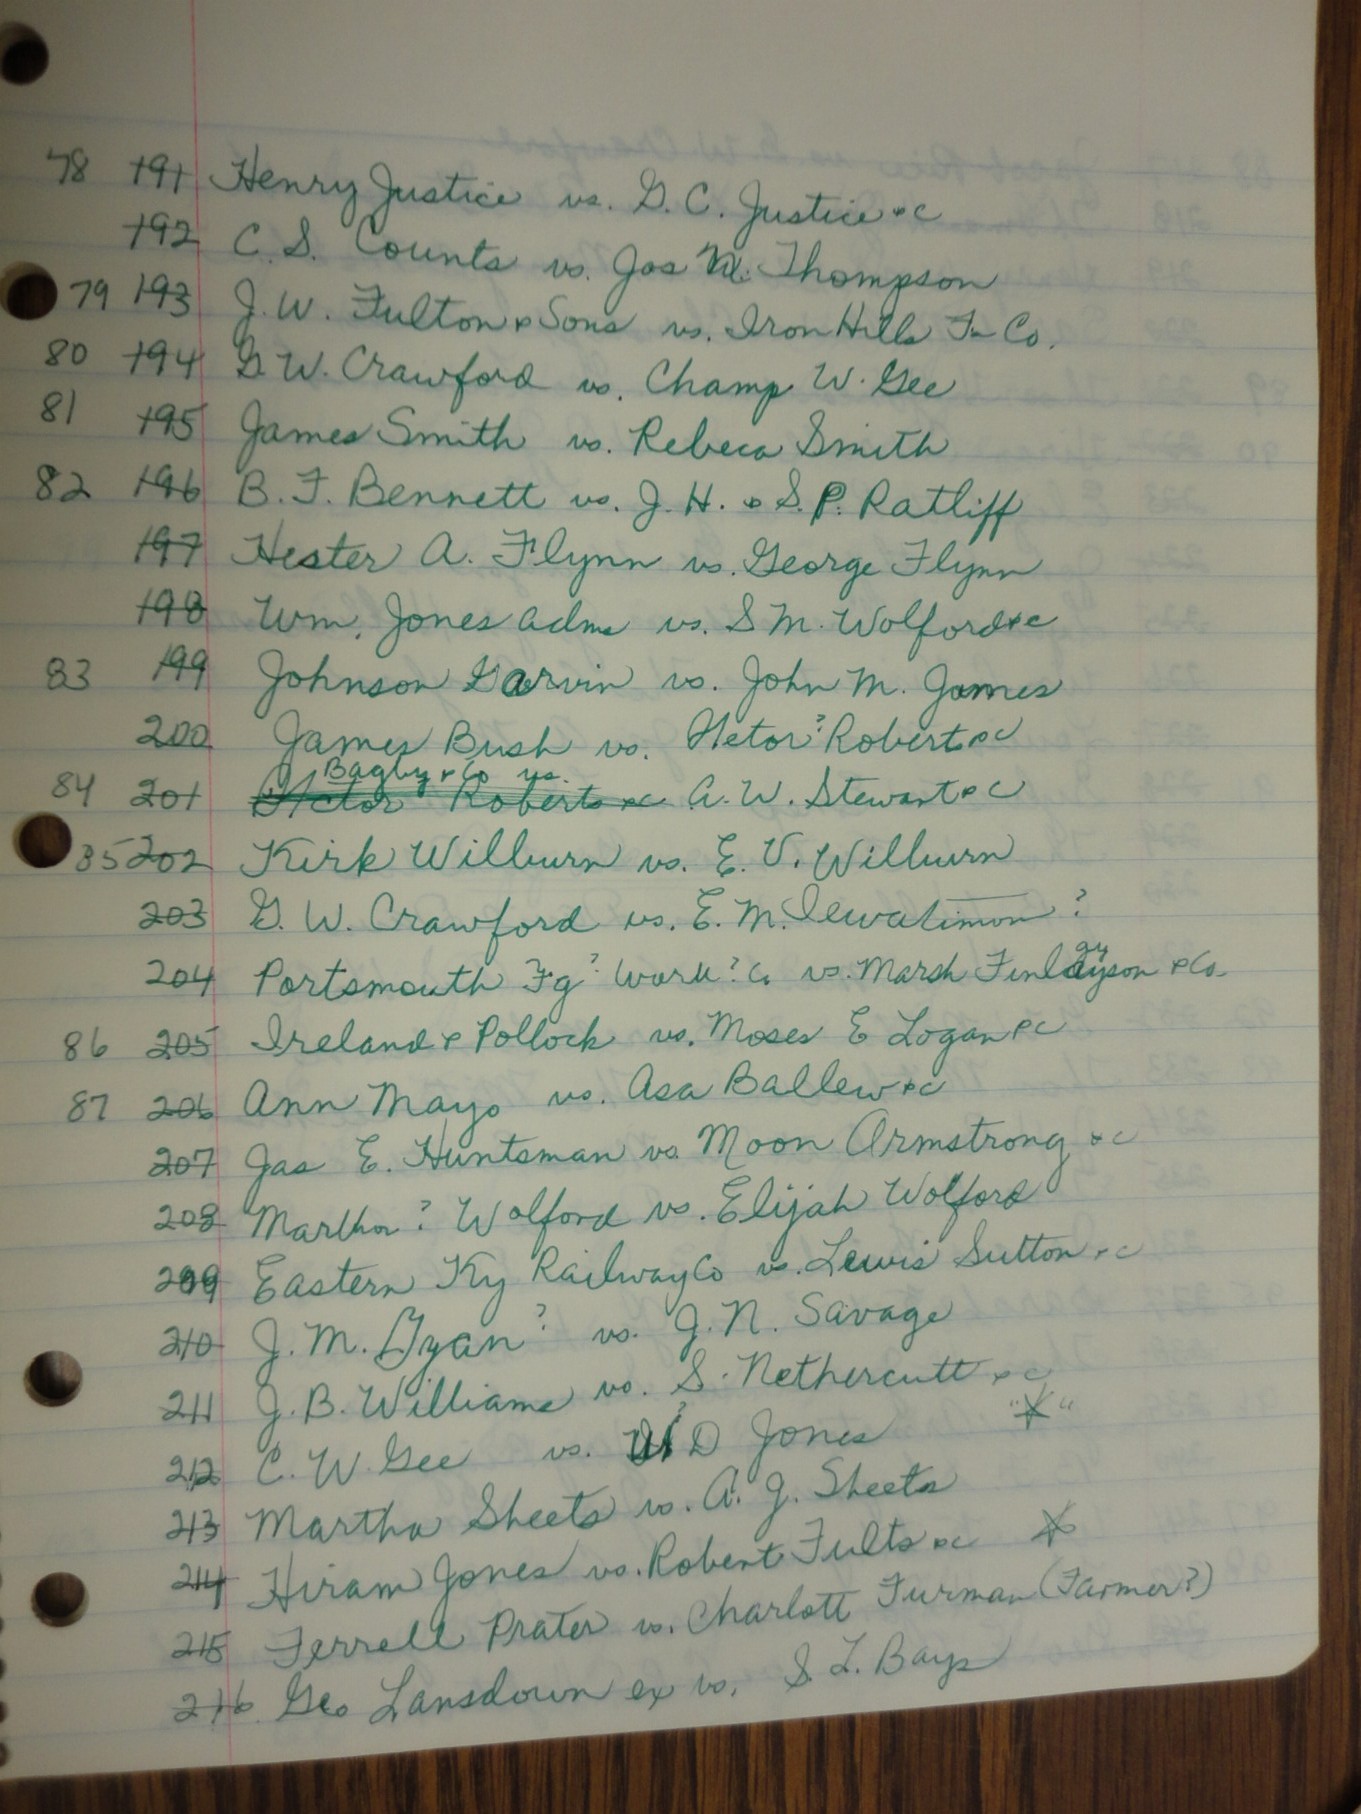 78 191 Henry Justice vs. G. C. Justice &c
192 C. S. Counts vs. Jas M. Thompson
79 193 J. W. Fulton & Sons vs. Iron Hills Fn Co.
80 194 G. W. Crawford vs. Champ W. Gee
81 195 James Smith vs. Rebeca Smith
82 196 B. F. Bennett vs. J. H. & S. P. Ratliff
197 Hester A. Flynn vs. George Flynn
198 Wm. Jones adms vs. S M. Wolford &c
83 199 Johnson Garvin vs. John M. James
200 James Bush vs. Hetor? Roberts &c
Bagby & Co vs.
84 201 Roberts &c A. W. Stewart &c
85 202 Kirk Wilburn vs. E. V. Wilburn
203 G. W. Crawford vs. E. M. ?
204 Portsmouth Fg? Work? Co vs. Marsh Finlayson & Co.
86 205 Ireland & Pollock vs. Moses E Logan &c
87 206 Ann Mayo vs. Asa Ballew &c
207 Jas E. Huntsman vs Moon Armstrong &c
208 Martha? Wolford vs. Elijah Wolford
209 Eastern Ky Railway Co vs. Lewis Sutton &c
210 J. M. Gyan? vs. J. N. Savage
211 J. B. Williams vs. S. Nethercutt &c
212 C. W. Gee vs. W? D Jones "*"
213 Martha Sheets vs. A. J. Sheets
214 Hiram Jones vs. Robert Fults &c *
215 Ferrell Prater vs. Charlott Furman (Farmer?)
216 Geo Lansdown ex vs. S. L. Bays